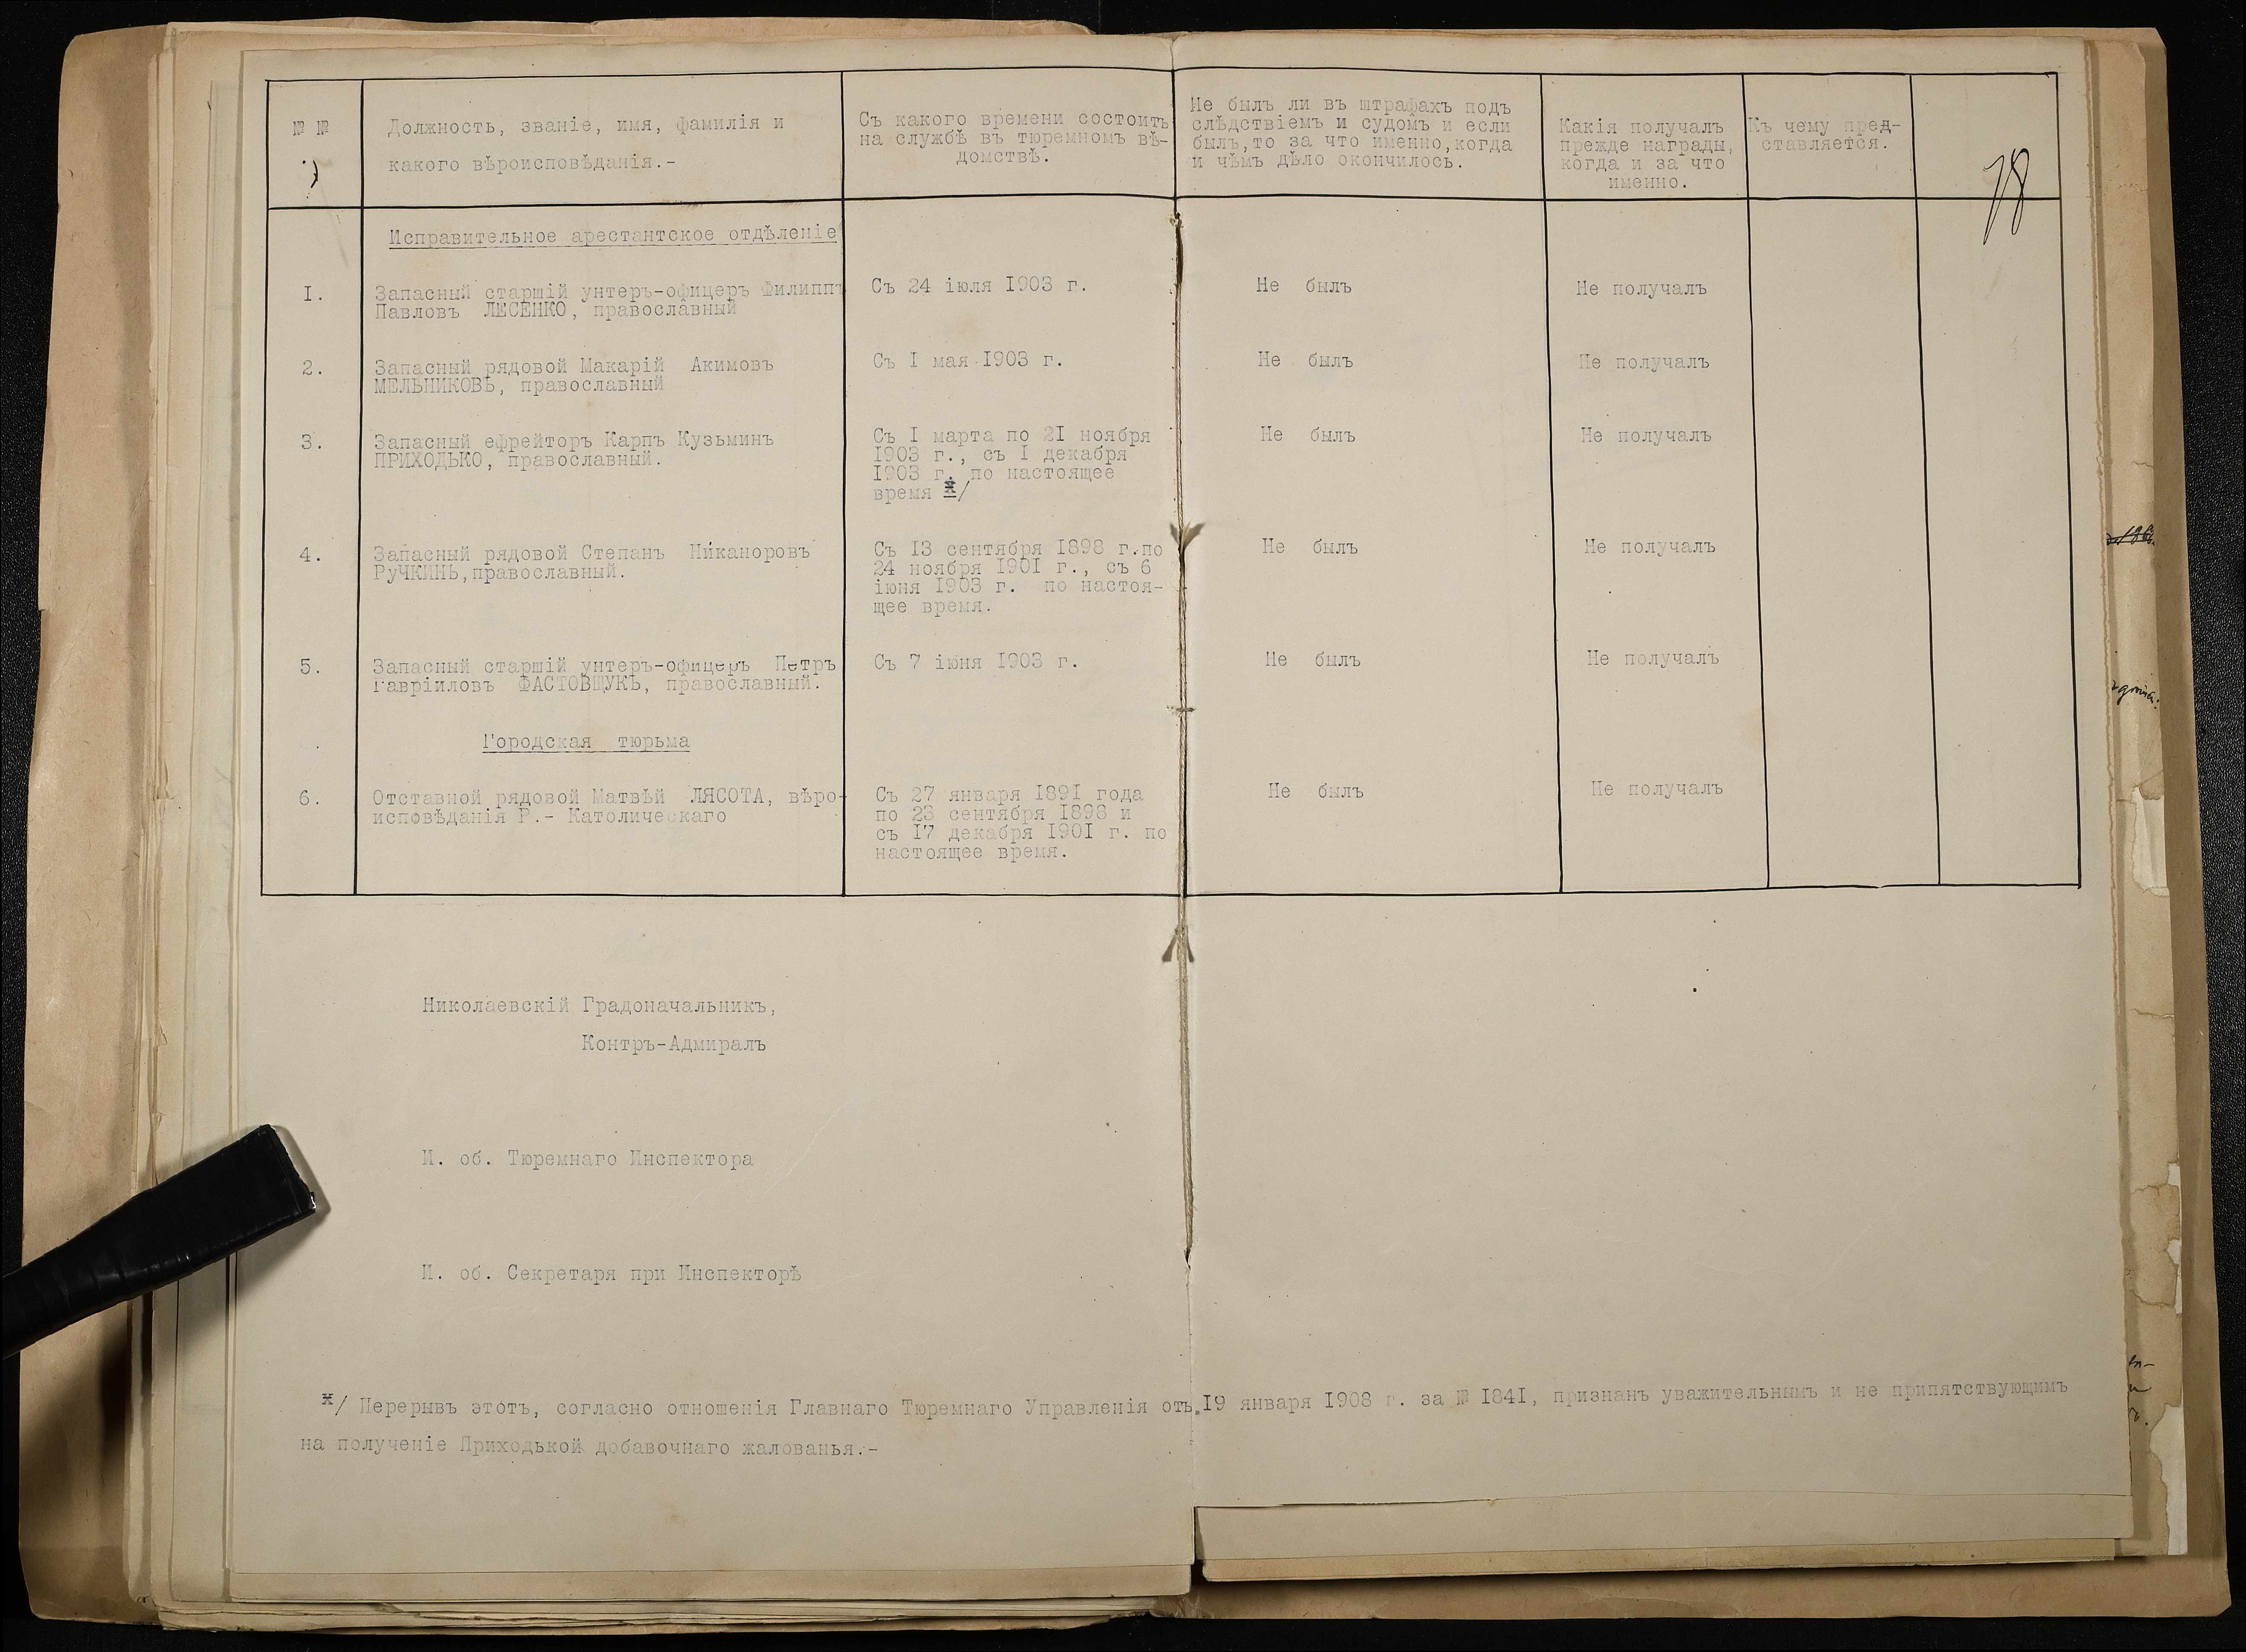 № №
Должность, званіе, имя, фамилія и
какого вѣроисповѣданія.-
Съ какого времени состоитъ
на службѣ въ тюремномъ вѣ-
домствѣ.
Не былъ ли въ штрафахъ подъ
слѣдствіемъ и судомъ и если
былъ,то за что именно,когда
и чѣмъ дѣло окончилось.
Какія получалъ
прежде награды,
когда и за что
именно.
Къ чему пред-
ставляется.
78
Исправительное арестантское отдѣленіе
I.
Запасный старшій унтеръ-офицеръ Филиппъ
Павловъ ЛЕСЕНКО, православный
Съ 24 іюля I903 г.
Не былъ
Не получалъ
2.
Запасный рядовой Макарій Акимовъ
МЕЛЬНИКОВЪ, православный
Съ I мая I903 г.
Не былъ
Не получалъ
3.
Запасный ефрейторъ Карпъ Кузьминъ
ПРИХОДЬКО, православный.
Съ I марта по 2I ноября
I903 г., съ I декабря
I903 г. по настоящее
время х/
Не былъ
Не получалъ
4.
Запасный рядовой Степанъ Никаноровъ
РуЧКИНЬ,православный.
Съ I3 сентября I898 г.по
24 ноября I90I г., съ 6
іюня I903 г. по настоя-
щее время.
Не былъ
Не получалъ
5.
Запасный старшій унтеръ-офицеръ Петръ
Гавріиловъ ФАСТОВЩУКЪ, православный.
Съ 7 іюня I903 г.
Не былъ
Не получалъ
Городская тюрьма
6.
Отставной рядовой Матвѣй ЛЯСОТА, вѣро-
исповѣданія Р.- Католическаго
Съ 27 января I89I года
по 23 сентября I898 и
съ I7 декабря I90I г. по
настоящее время.
Не былъ
Не получалъ
Николаевскій Градоначальникъ,
Контръ-Адмиралъ
И. об. Тюремнаго Инспектора
И. об. Секретаря при Инспекторѣ
х/ Перерывъ этотъ, согласно отношенія Главнаго Тюремнаго Управленія отъ I9 января I908 г. за № I84I, признанъ уважительнымъ и не припятствующимъ
на полученіе Приходькой добавочнаго жалованья.-